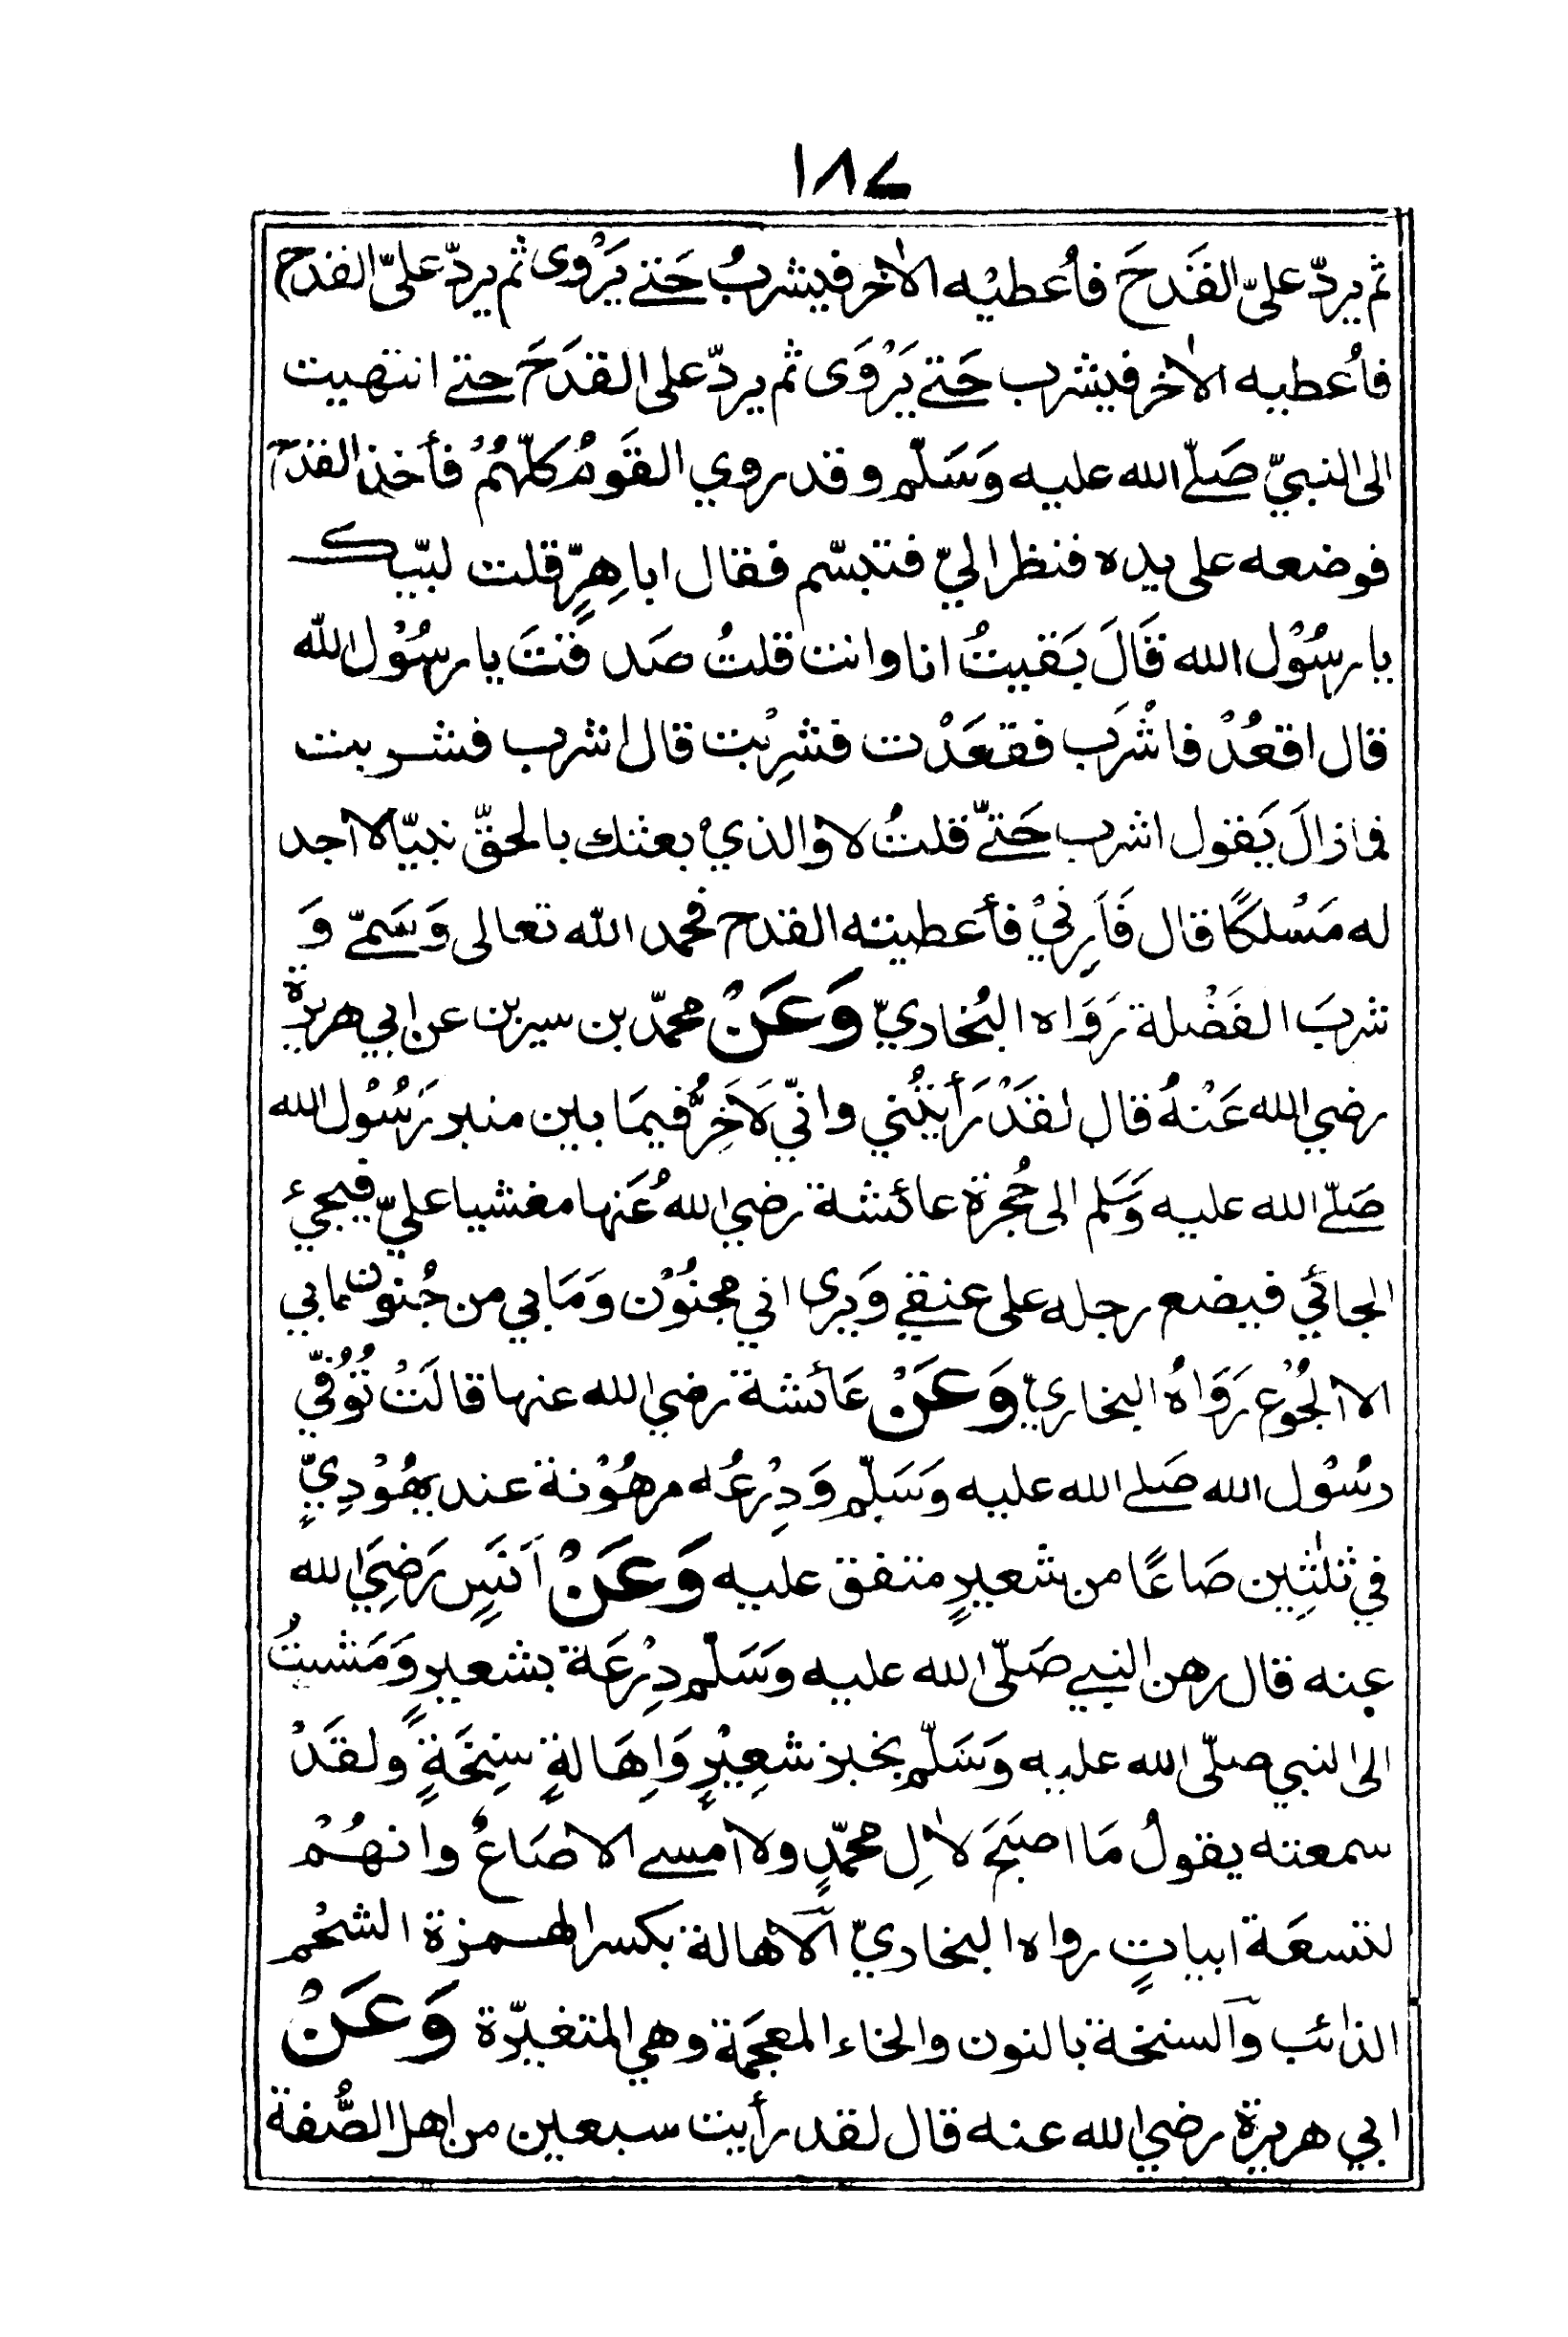 ١٨٧
ثم يردّ عليّ القَدحَ فاُعطيْه الاٰخر فيشربُ حَتى يَرْوى ثم يردّ عليّ القدح
فاُعطيه الاٰخر فيشرب حَتى يَرْوَى ثم يردّ على القدَحَ حتى انتهيت
الى النبيّ صَلّى الله عليه وَسَلّم وقد روي القَومُ كلّهُمْ فأخذ القدح
فوضعه على يده فنظر اليّ فتبسّم فقال اباهِرٍّ قلت لبّيك
يا رسُوْل الله قَالَ بَقيتُ انا وانت قلتُ صَدقتَ يا رسُوْل الله
قال اقعُدْ فاشْرَب فقعَدْت فشرِبْت قال اشرب فشربت
فما زالَ يَقول اشرب حَتّى قلتُ لا وْالذيْ بعثك بالحقّ نبيّا لا اجد
له مَسْلكًا قال فَاَرِنيْ فأعطيته القدح فحمد الله تعالى وَسَمّى وَ
شربَ الفَضْلة رَوَاه البُخاريّ وَعَنْ محمّد بن سيرين عن ابي هريرة
رضي الله عَنْهُ قال لقدْ رَأيتُني وانّي لَاَخِرُّ فيمَا بين منبر رَسُوْل الله
صَلّى الله عليه وَسَلم الى حُجرة عائشة رضي اللهُ عَنها مغشيا عليّ فيجيء
الجائي فيضع رجله على عنقي وَيرى اني مجنُوْن وَمَابي من جُنون مابي
الا الجُوْع رَوَاهُ البخاريّ وَعَنْ عَائشة رضي الله عنها قالَتْ تُوُفّي
رسُوْل الله صَلى الله عليه وَسَلّم وَدِرْعُه مرهُوْنة عند يهُوْدِيٍّ
في ثلٰثِين صَاعًا من شعيرٍ متفق عليه وَعَنْ اَنَسٍ رَضِيَ الله
عنه قال رهن النبي صَلّى الله عليه وَسَلّم دِرْعَة بشعيرٍ وَمَشيتُ
الى النبي صلّى الله عليه وَسَلّم بخبز شعِيْرٍ وَاِهَالةٍ سنِخَةٍ ولقَدْ
سمعته يقولُ مَا اصبَحَ لاٰلِ محمّدٍ ولا امسى الا صَاعٌ وانهُمْ
لتسعَة ابياتٍ رواه البخاريّ اَلاهالة بكسر الهمزة الشحْم
الذائب واَلسنخة بالنون والخاء المعجَمة وهي المتغيّرة وَعَنْ
ابي هريرة رضي الله عنه قال لقد رأيت سبعين من اهل الصُّفة